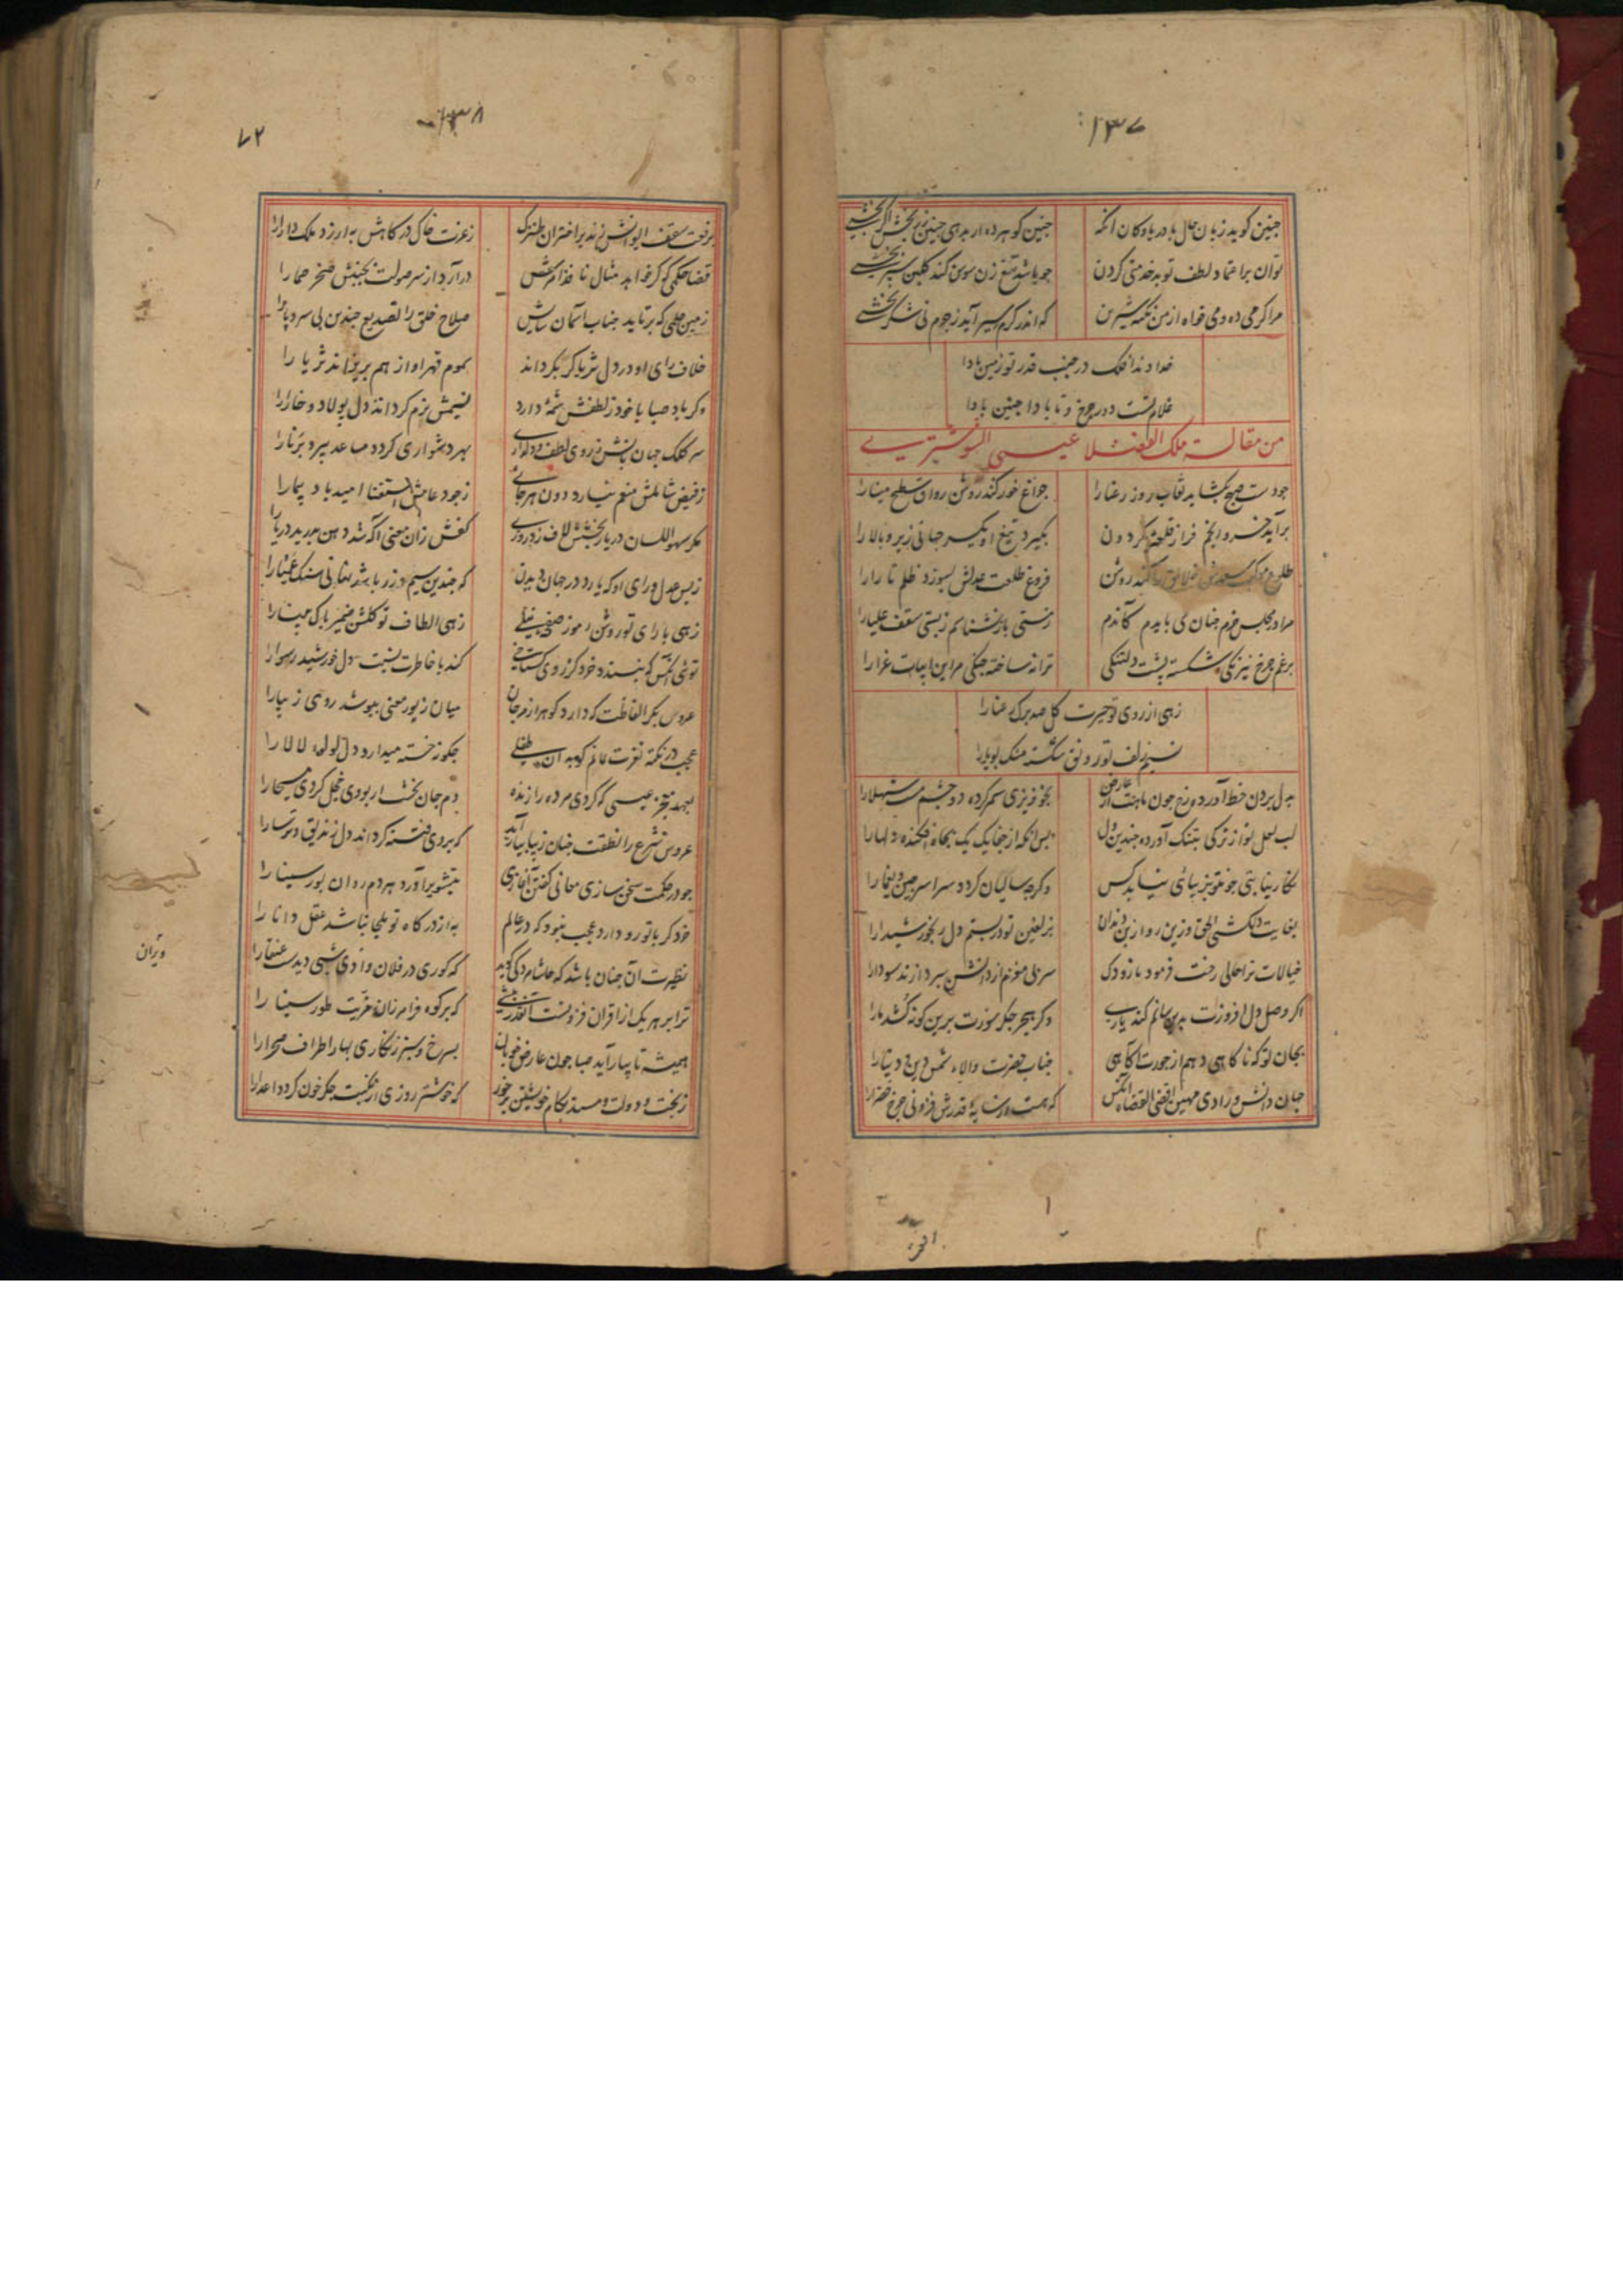 ۱۳۷
جنین کوید زبان حال با در یا و کان انکه جنین کوهر ده ار بدهی جنین زر بخش اکر بخشی
توان بر اعتماد لطف تو بد خدمتی کردن جو باشد تیغ زن سوسن کند کلبن سپر بخشی
مرا کر می ده و می خواه از من نکته شیرین که اندر کرم سیر آید ز جرم نی شکر بخشی
خداوندا فلک در جنب قدر تو زمین بادا
غلام تست دور جرخ و تا بادا جنین بادا
من مقالة ملک الفضلا عیسی الشوشتری
جو دست صبح بکشاید نقاب روز رعنا را جراغ خور کند روشن رواق سطح مینا را
برآید خسرو انجم فراز قلعه کردون بکیرد تیغ او یکسر جهانی زیر و بالا را
طلوع موکب سعدش کند روشن فروغ طلعت عدلش بسوزد ظلم تارا را
مرا در مجلس خرم جنان می بایدم کاندم ز مستی باز نشناسم ز پستی سقف علیا را
برغم جرخ نیرنکی شکسته پشت دلتنکی ترانه ساخته جنکی مر این ابیات غرا را
زهی از روی تو حیرت کل صدبرک رعنا را
نسیم زلف تو رونق شکسته مشک بویا را
به دل بردن خط آورده رخ جون ماهت از عارض بخونریزی سم کرده دو جشم مست شهلا را
لب لعل تو از ترکی بتنک آورده جندین دل پس آنکه از جفا یک یک بجاه افکنده دلها را
نکارینا بتی جون تو بزیبائی نیابد کس وکر صد سالیان کردد سراسر جین و یغما را
خیالات ترا حالی رخت فرمود بازو دک سر زلف
اکر وصل دل افروزت بدرمانم کند یاری وکر هجر جکر سوزت برین کونه کشد ما را
بجان تو که ناکاهی دهم از جورت آکاهی جناب حضرت والاء شمس دین و دنیا را
جهان دانش و رادی مهین اقضی القضاه انکس که هست از پایه قدرش فزونی جرخ خضرا را
۱۳۸
۷۲
برفعت سقف ایوانش زند بر اختران طنزک ز عزت خاک درکاهش به ارزد ملک دارا را
قضا حکمی که کر خواهد مثال نافذ امرش درآرد از سر صولت بجنبش صخر صما را
زمین حلمی که برتابد جناب آسمان سایش صلاح خلق را تصدیع جندین بی سر و پا را
خلاف رای او در دل ثریا کر بکرداند سموم قهر او از هم بریزاند ثریا را
وکر باد صبا با خود ز لطفش شمهٔ دارد نسیمش نرم کرداند دل پولاد و خارا را
سر کلک جهان بانش ز روی لطف و دلداری بهر دشواری کردد مساعد پیر و برنا را
ز فیض شاملش منعم نیارد دون هر جائی ز جود عامش استغنا امید باد پیما را
مکر سهو اللسان دریا ز بخشش لاف زد روزی کفش زان معنی آکه شد دهن بدرید دریا را
ز بس عدل و رای او که یارد در جهان دیدن که جندین سیم و زر باشد
زهی با رای تو روشن رموز صفحه نیلی زهی الطاف تو کلشن ضمیر پاک مینا را
توئی آنکس که نپسندد خرد کز روی کستاخی کند با خاطرت نسبت دل خورشید رسوا را
عروس بکر الفاظت که دارد کوهر از مرجان میان زیور معنی بپوشد روی زیبا را
عجب در نکته نغزت مانم کو بدان طفلی جکر خسته میدارد دل لولوء لالا را
بعهد معجز عیسی که کردی مرده را زنده دم جان بخشت ار بودی خجل کردی مسیحا را
عروس شرع را نطقت جنان زیبا بیاراید که بر روی فتنه کرداند دل زندیق و ترسا را
جو در حکمت سخن سازی معانی کفتن آغازی بتشویر آورد هر دم روان بور سینا را
خرد کر با تو رو دارد عجب نبود که در عالم به از درکاه تو ملجا نباشد عقل دانا را
نظیرت آن جنان باشد که حاشا مردکی کوید که کوری در فلان وادی شبی دیدست عنقا را
ترا بر هر یک از اقران فزونست آنقدر بیشی که بر کوه فرامرزان مزیت طور سینا را
همیشه تا بیاراید صبا جون عارض خوبان بسرخ و سبز زنکاری بهار اطراف صحرا را
ز بخت و دولت و مسند بکام خویشتن برخور که خوشتر روزی از نکبت جکر خون کردد اعدا را
ویران